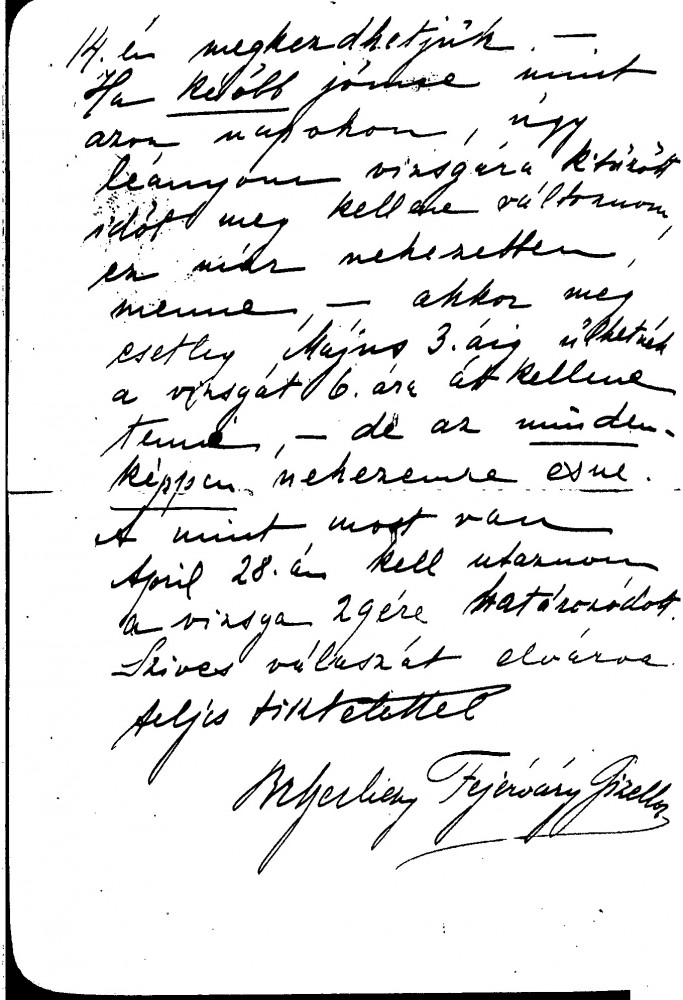 14.én megkezdhetjük. —
Ha később jönne mint
azon napokon, úgy
leányom vizsgára kitűzött
időt meg kellene változnom,
ez már nehezebben,
menne, — akkor meg
esetleg Május 3.áig ülhetnék
a vizsgát 6.ára át kellene
tenni, — de az minden-
képpen nehezemre esne.
A mint most van
April 28.án kell utaznom
a vizsga 29ére határozódott.
Szives válaszát elvárva
teljes tisztelettel
Fejérváry Gizella